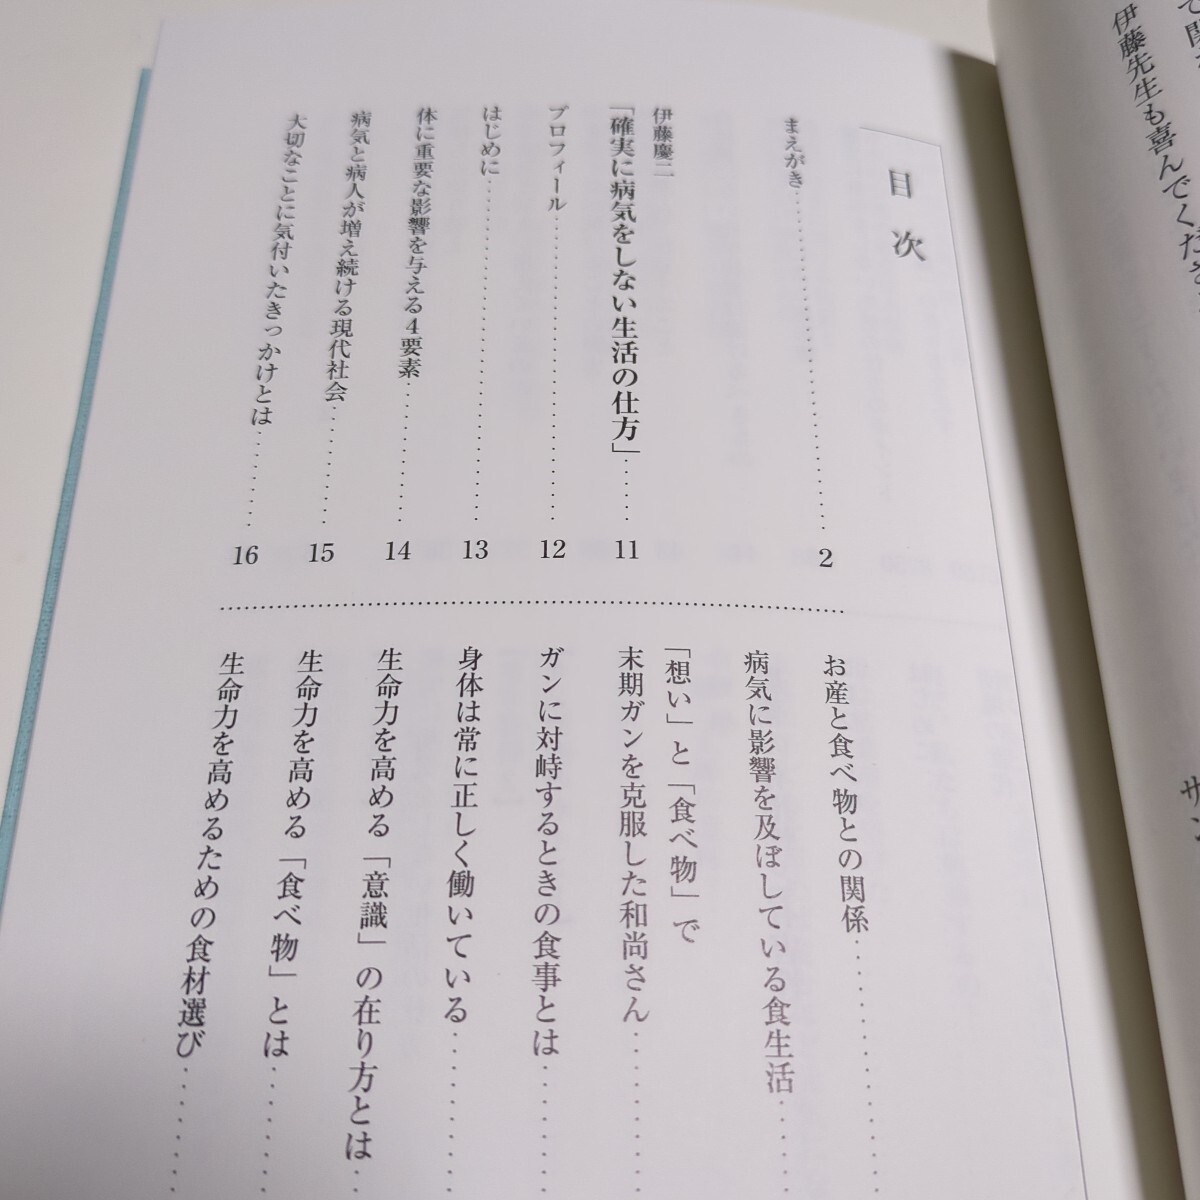 伊藤先生も喜んでくださ
サン
目次
まえがき 2
伊藤慶二
「確実に病気をしない生活の仕方」 11
プロフィール 12
はじめに 13
体に重要な影響を与える4要素 14
病気と病人が増え続ける現代社会 15
大切なことに気付いたきっかけとは 16
お産と食べ物との関係
病気に影響を及ぼしている食生活
「想い」と「食べ物」で
末期ガンを克服した和尚さん
ガンに対峙するときの食事とは
身体は常に正しく働いている
生命力を高める「意識」の在り方とは
生命力を高める「食べ物」とは
生命力を高めるための食材選び